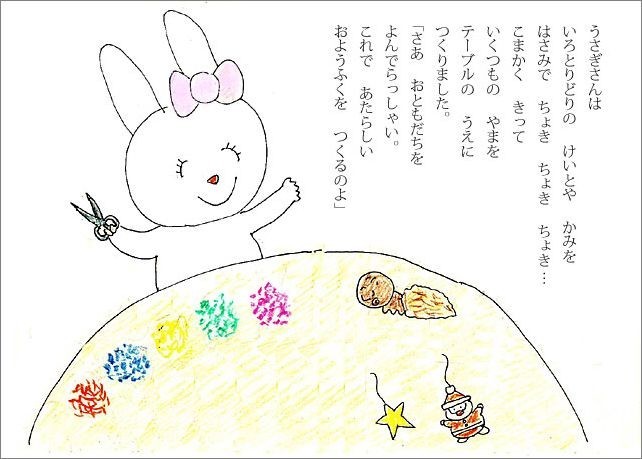 うさぎさんは
いろとりどりの　けいとや　かみを
はさみで　ちょき　ちょき　ちょき…
こまかく　きって
いくつもの　やまを
テーブルの　うえに
つくりました。
「さあ　おともだちを
よんでらっしゃい。
これで　あたらしい
おようふくを　つくるのよ」